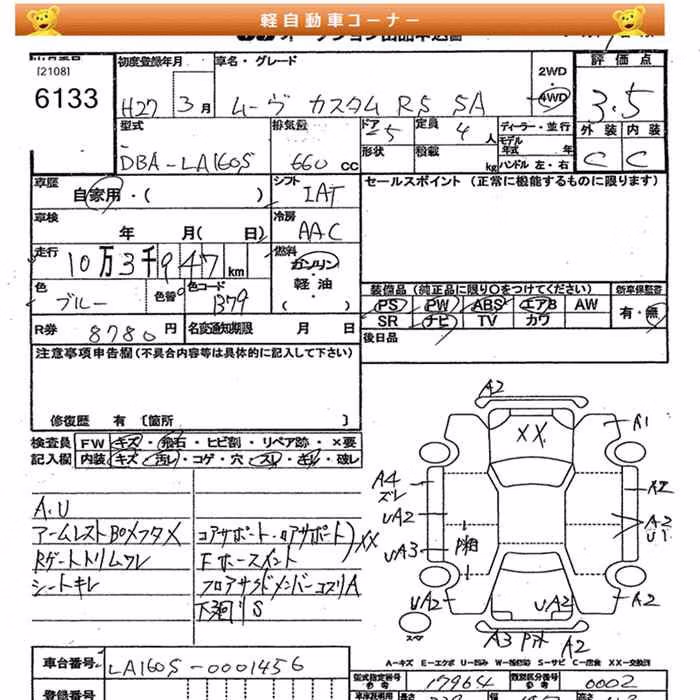 軽自動車コーナー
[2108]
6133
初度登録年月
H27 3月
車名・グレード
ムーヴ カスタム RS SA
2WD
4WD
評価点
3.5
外装 内装
C C
型式
DBA-LA160S
排気量
660 CC
ドア
5
定員
4 人
形状
積載
kg
ディーラー・並行
モデル年式 年
ハンドル 左・右
車歴
自家用・( )
シフト
IAT
セールスポイント (正常に機能するものに限ります)
車検
年 月( 日)
冷房
AAC
走行
10万3千947 km
燃料
ガソリン・軽油
( )
色
ブルー
色替
色コード
B79
R券 8780円
名変通知期限 月 日
装備品 (純正品に限り○をつけてください)
新車保証書
PS PW ABS エアB AW
SR ナビ TV カワ
有・無
後日品
注意事項申告欄(不具合内容等は具体的に記入して下さい)
修復歴 有 〔箇所 〕
検査員 FW キズ・飛石・ヒビ割・リペア跡・×要
記入欄 内装 キズ・汚レ・コゲ・穴・スレ・キレ・破レ
A.U
アームレストBOXフタメ
Rゲートトリムワレ
シートキレ
コアサポート・ロアサポート
Fホースメント
XX
フロアサイドメンバーコスリA
下廻りS
A2
A1
XX
A4
ズレ
A2
UA2
A2
U1
UA3
UA2
UA2
A2
スペア
A3
A2
A-キズ E-エクボ U-凹み W-補修跡 S-サビ C-腐食 XX-交換済
車台番号
LA160S-0001456
登録番号
型式指定番号
17964
類別区分番号
0002
長さ
幅
高さ